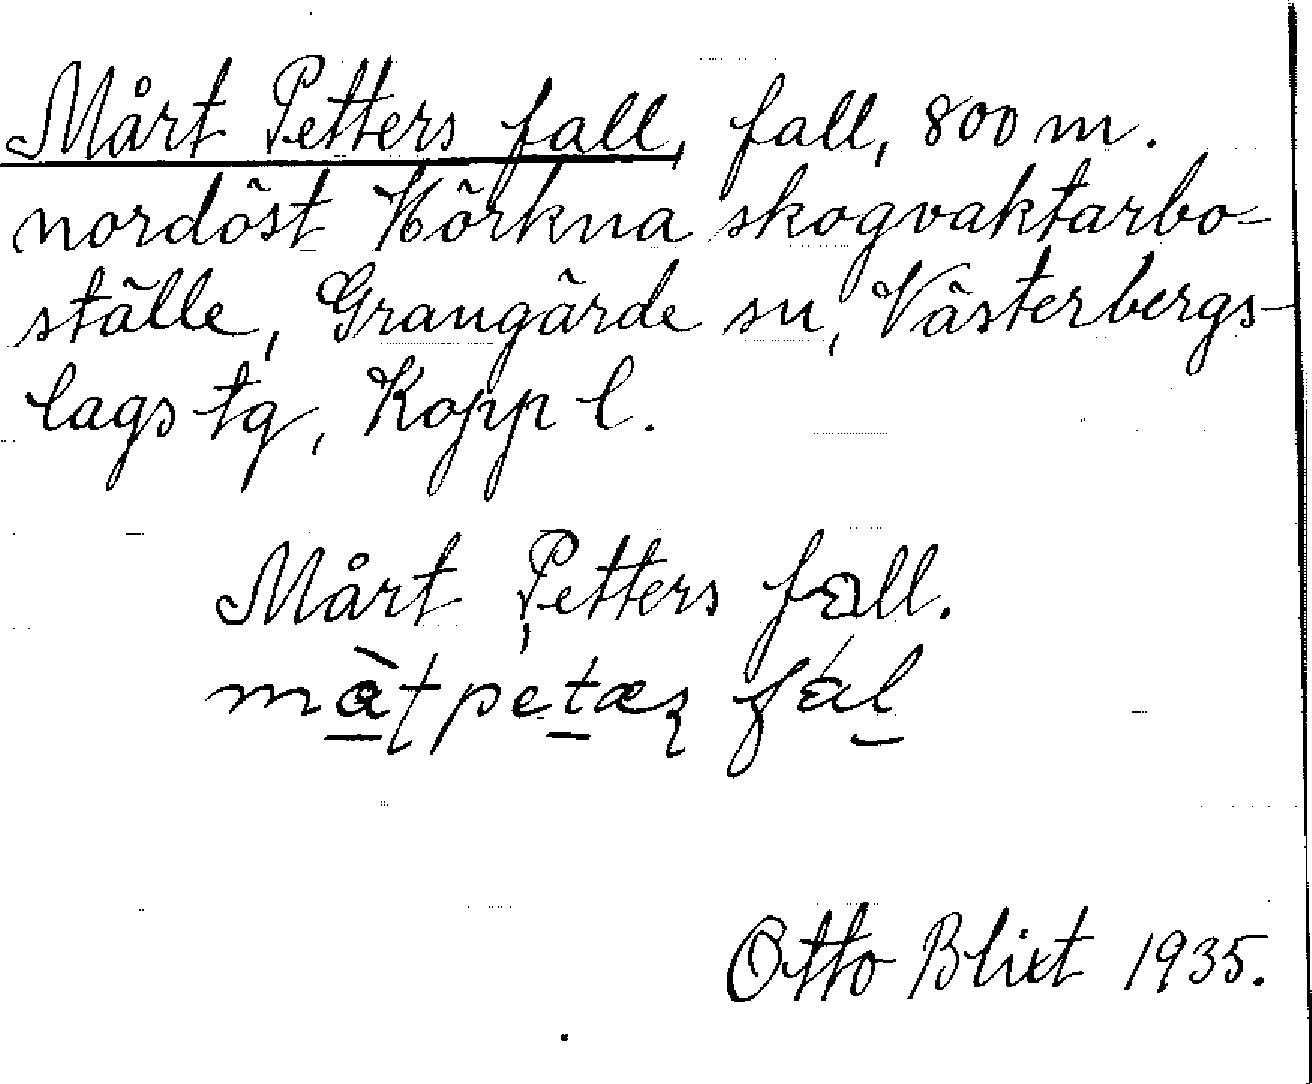 Mårt Petters fall, fall, 800 m.
nordöst Hörkna skogvaktarbo-
ställe, Grangärde sn, Västerbergs-
lags tg, Kopp l.
Mårt Petters fall.
Otto Blixt 1935.